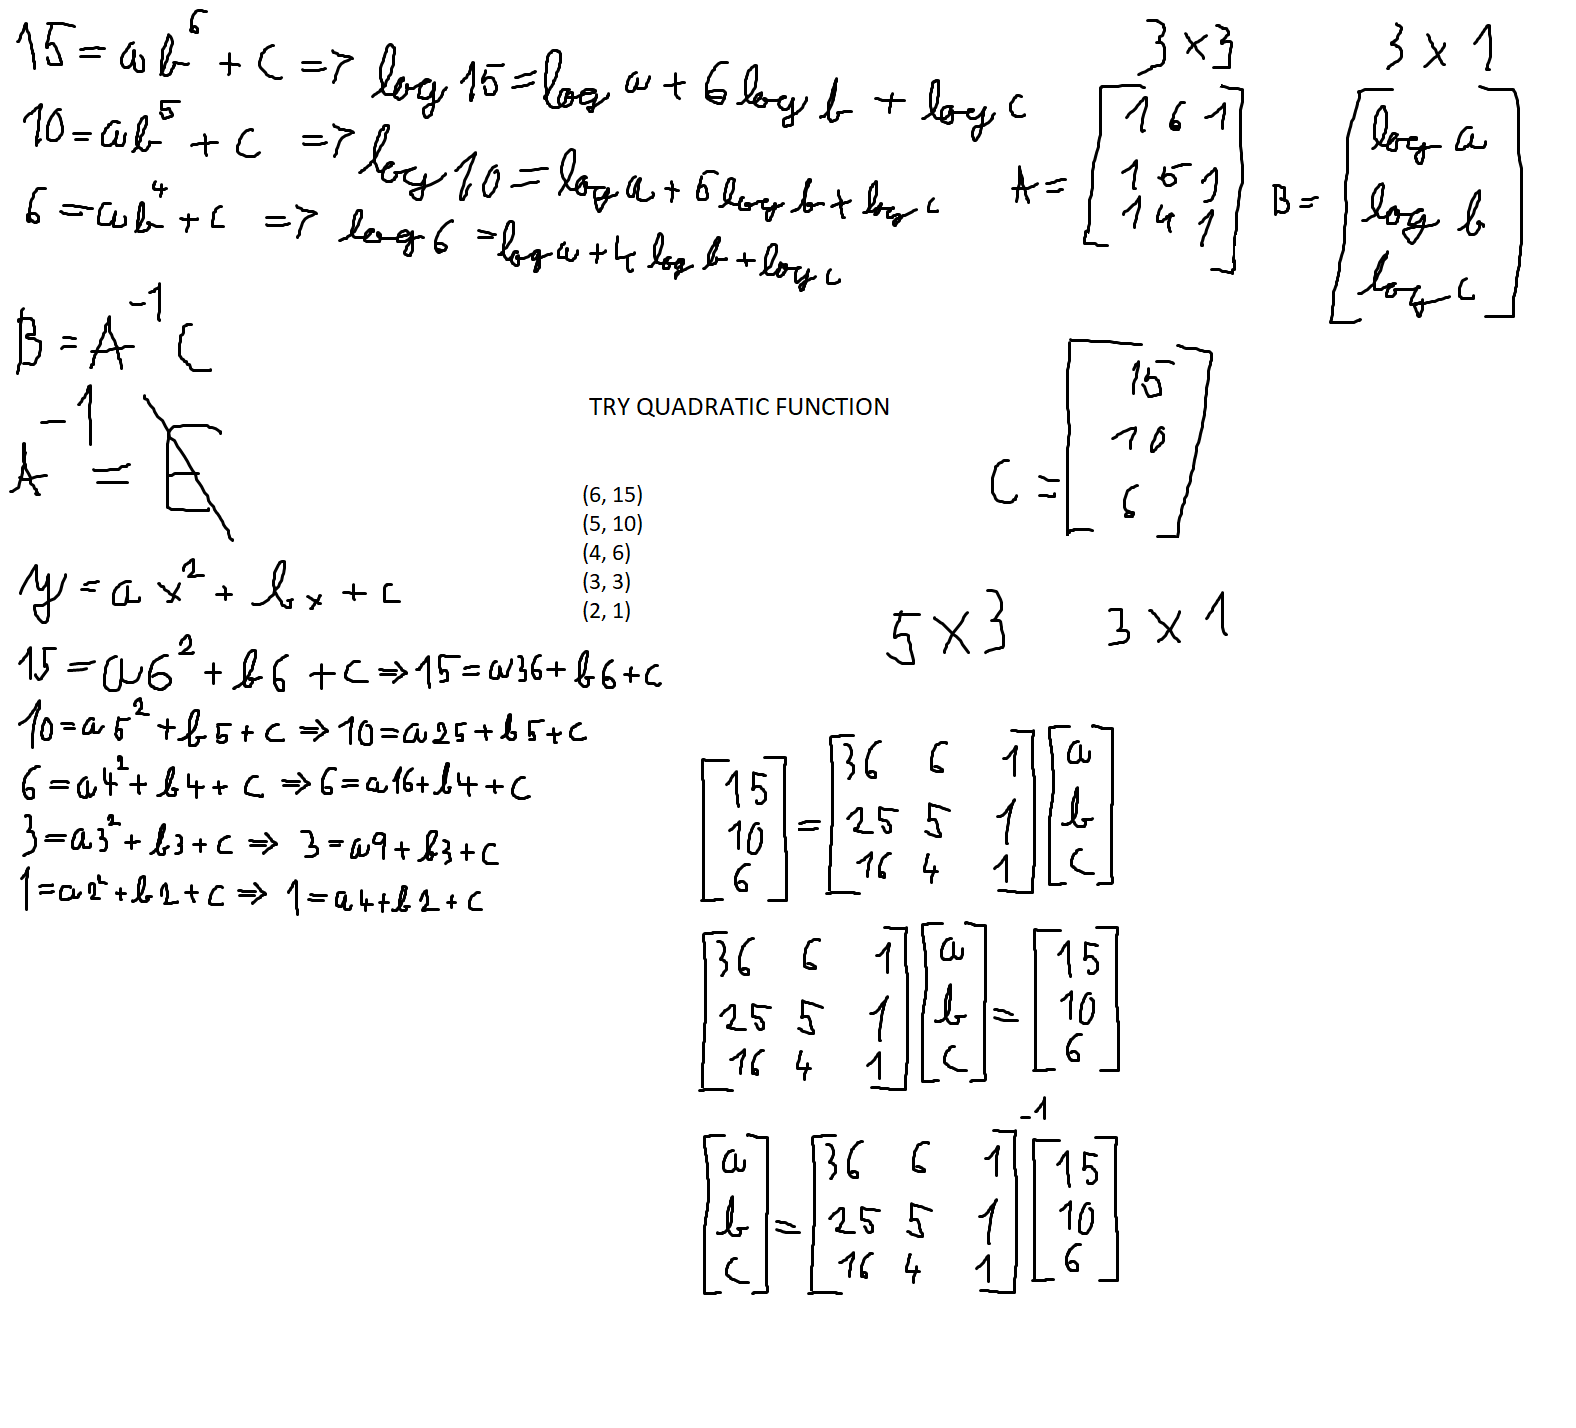 15 = ab^6 + c => log 15 = log a + 6 log b + log c
10 = ab^5 + c => log 10 = log a + 5 log b + log c
6 = ab^4 + c => log 6 = log a + 4 log b + log c
3 x 3
A = [1 6 1
1 5 1
1 4 1]
3 x 1
B = [log a
log b
log c]
B = A^-1 C
A^-1 = E
TRY QUADRATIC FUNCTION
C = [15
10
6]
(6, 15)
(5, 10)
(4, 6)
(3, 3)
(2, 1)
y = a x^2 + b x + c
15 = a6^2 + b6 + c => 15 = a36 + b6 + c
10 = a5^2 + b5 + c => 10 = a25 + b5 + c
6 = a4^2 + b4 + c => 6 = a16 + b4 + c
3 = a3^2 + b3 + c => 3 = a9 + b3 + c
1 = a2^2 + b2 + c => 1 = a4 + b2 + c
5 x 3 3 x 1
[15 = [36 6 1 [a
10 25 5 1 b
6] 16 4 1] c]
[36 6 1 [a = [15
25 5 1 b 10
16 4 1] c] 6]
[a = [36 6 1 [15
b 25 5 1 10
c] 16 4 1]^-1 6]